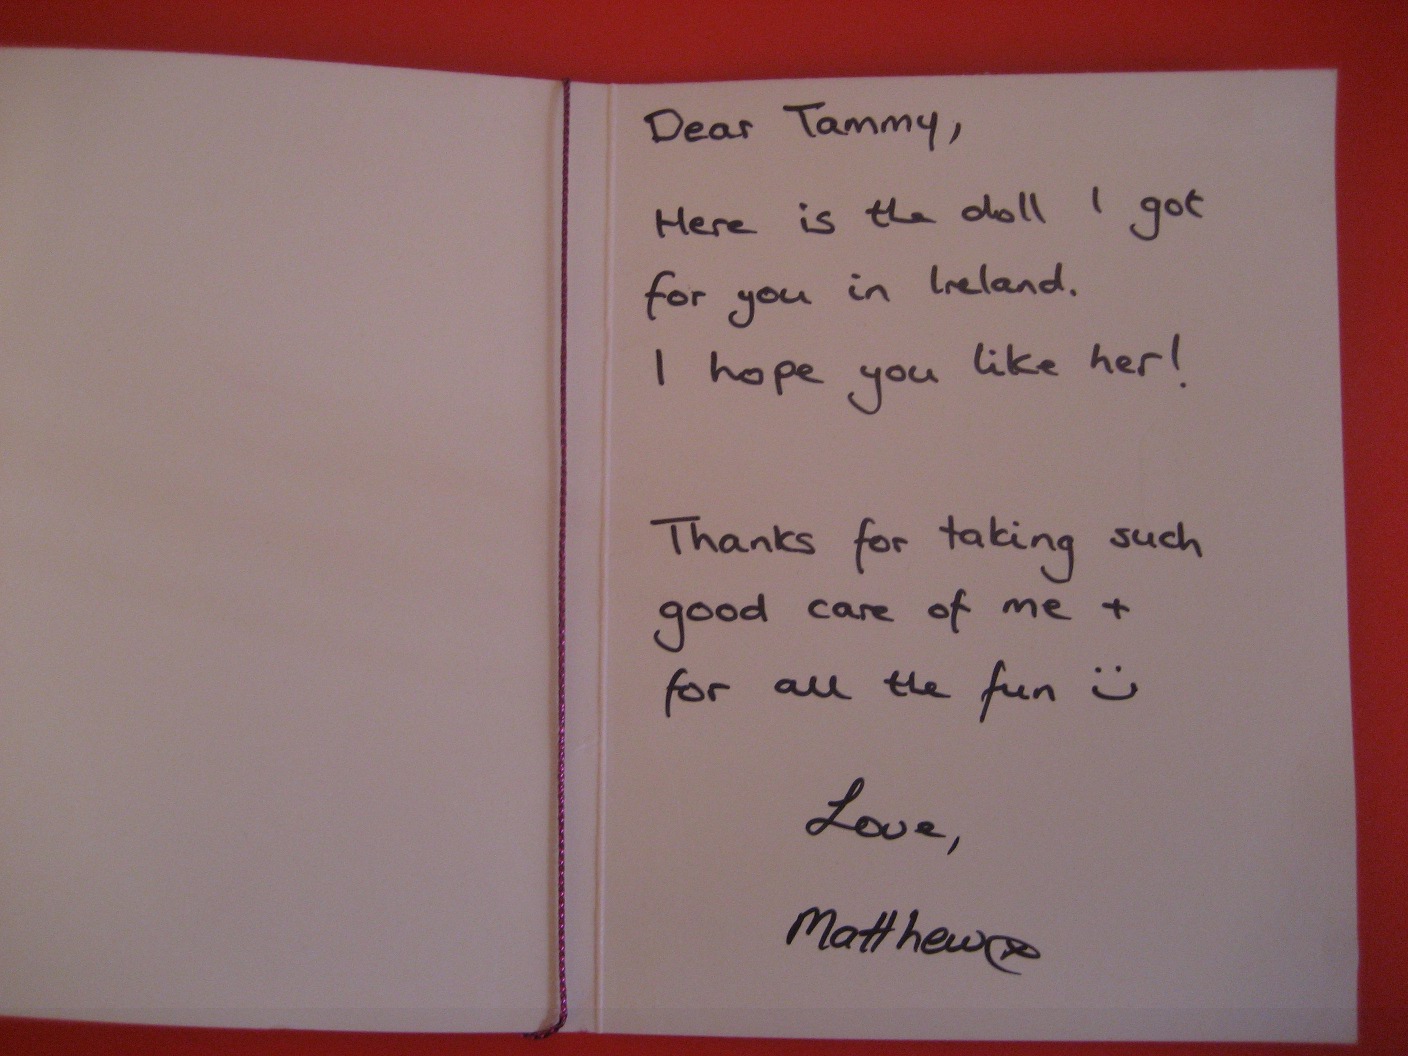 Dear Tammy,
Here is the doll I got
for you in Ireland.
I hope you like her!
Thanks for taking such
good care of me +
for all the fun :)
Love,
Matthew x